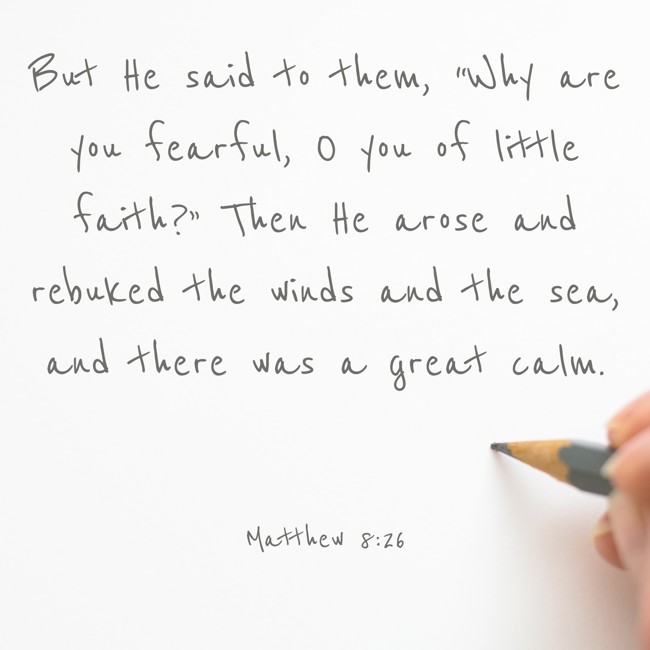 But He said to them, "Why are
you fearful, O you of little
faith?" Then He arose and
rebuked the winds and the sea,
and there was a great calm.
Matthew 8:26